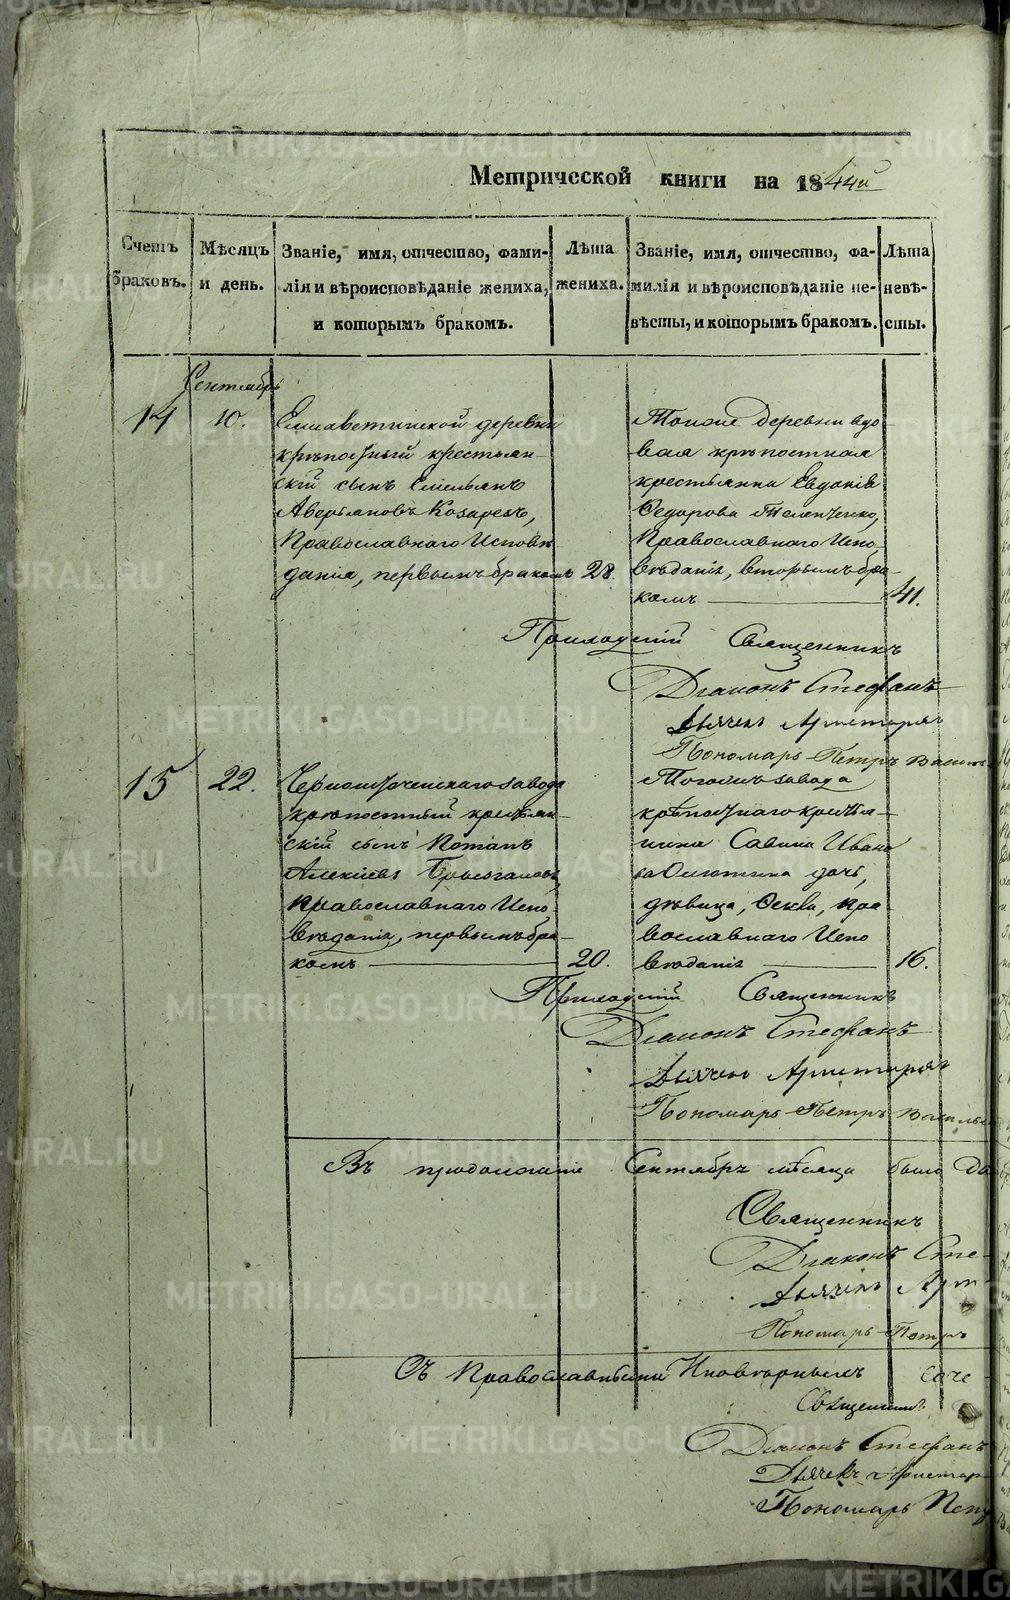 Метрической книги на 1844й
Счетъ браковъ.
Мѣсяцъ и день.
Званіе, имя, отчество, фами-
лія и вѣроисповѣданіе жениха,
и которымъ бракомъ.
Лѣта
жениха.
Званіе, имя, отчество, фа-
милія и вѣроисповѣданіе не-
вѣсты, и которымъ бракомъ.
Лѣта
невѣ-
сты.
Сентябрь
14
10.
Елисаветинской деревни
крѣпостный крестьян-
скій сынъ Емельянъ
Аверьяновъ Козаревъ,
Православнаго Исповѣ-
данія, первымъ бракомъ
28.
Тойже деревни вдо
вая крѣпостная
крестьянка Евдокія
Федорова
Православнаго Испо
вѣданія, вторымъ бра-
комъ
41.
Приходскій Священникъ
Діаконъ Стефанъ
Дьячекъ Аристархъ
Пономарь Петръ
15
22.
Черноисточенскаго завода
крѣпостный крестьян-
скій сынъ Романъ
Алексіевъ Брызгаловъ,
Православнаго Испо-
вѣданія, первымъ бра-
комъ
20.
Тогожъ завода
крѣпостнаго крестья-
нина Савина Ивано
ва дочь,
дѣвица, Фекла, Пра
вославнаго Испо
вѣданія
16.
Приходскій Священникъ
Діаконъ Стефанъ
Дьячекъ Аристархъ
Пономарь Петръ
Въ продолженіе Сентября мѣсяца было
Священникъ
Діаконъ Сте-
Дьячекъ Арист
Пономарь Петръ
Съ Православными Иновѣрныхъ соче-
Священникъ
Діаконъ Стефанъ
Дьячекъ Аристар
Пономарь Петр
METRIKI.GASO-URAL.RU